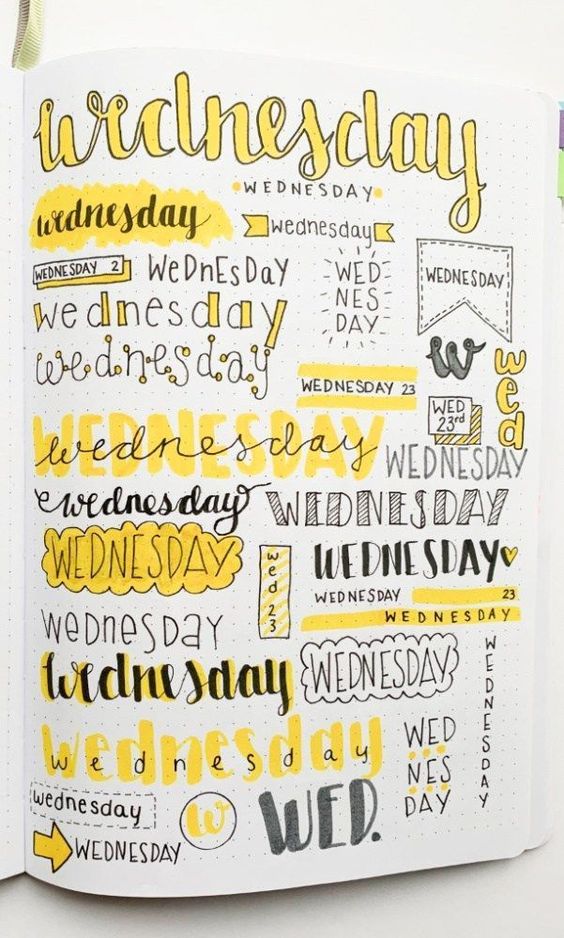 wednesday
WEDNESDAY
wednesday
wednesday
WEDNESDAY 2
WeDnEsDaY
WED
NES
DAY
WEDNESDAY
wednesday
wednesday
w
wed
WEDNESDAY 23
WED
23rd
WEDNESDAY
wednesday
WEDNESDAY
wednesday
WEDNESDAY
WEDNESDAY
wed 23
WEDNESDAY
WEDNESDAY 23
WEDNESDAY
wednesday
WEDNESDAY
wednesday
WEDNESDAY
wednesday
wednesday
WED
NES
DAY
wednesday
w
WED.
WEDNESDAY